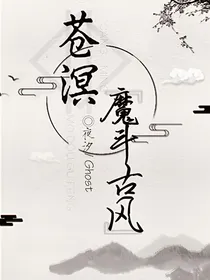 苍溟
魔斗古风
◎夜汐/Ghost